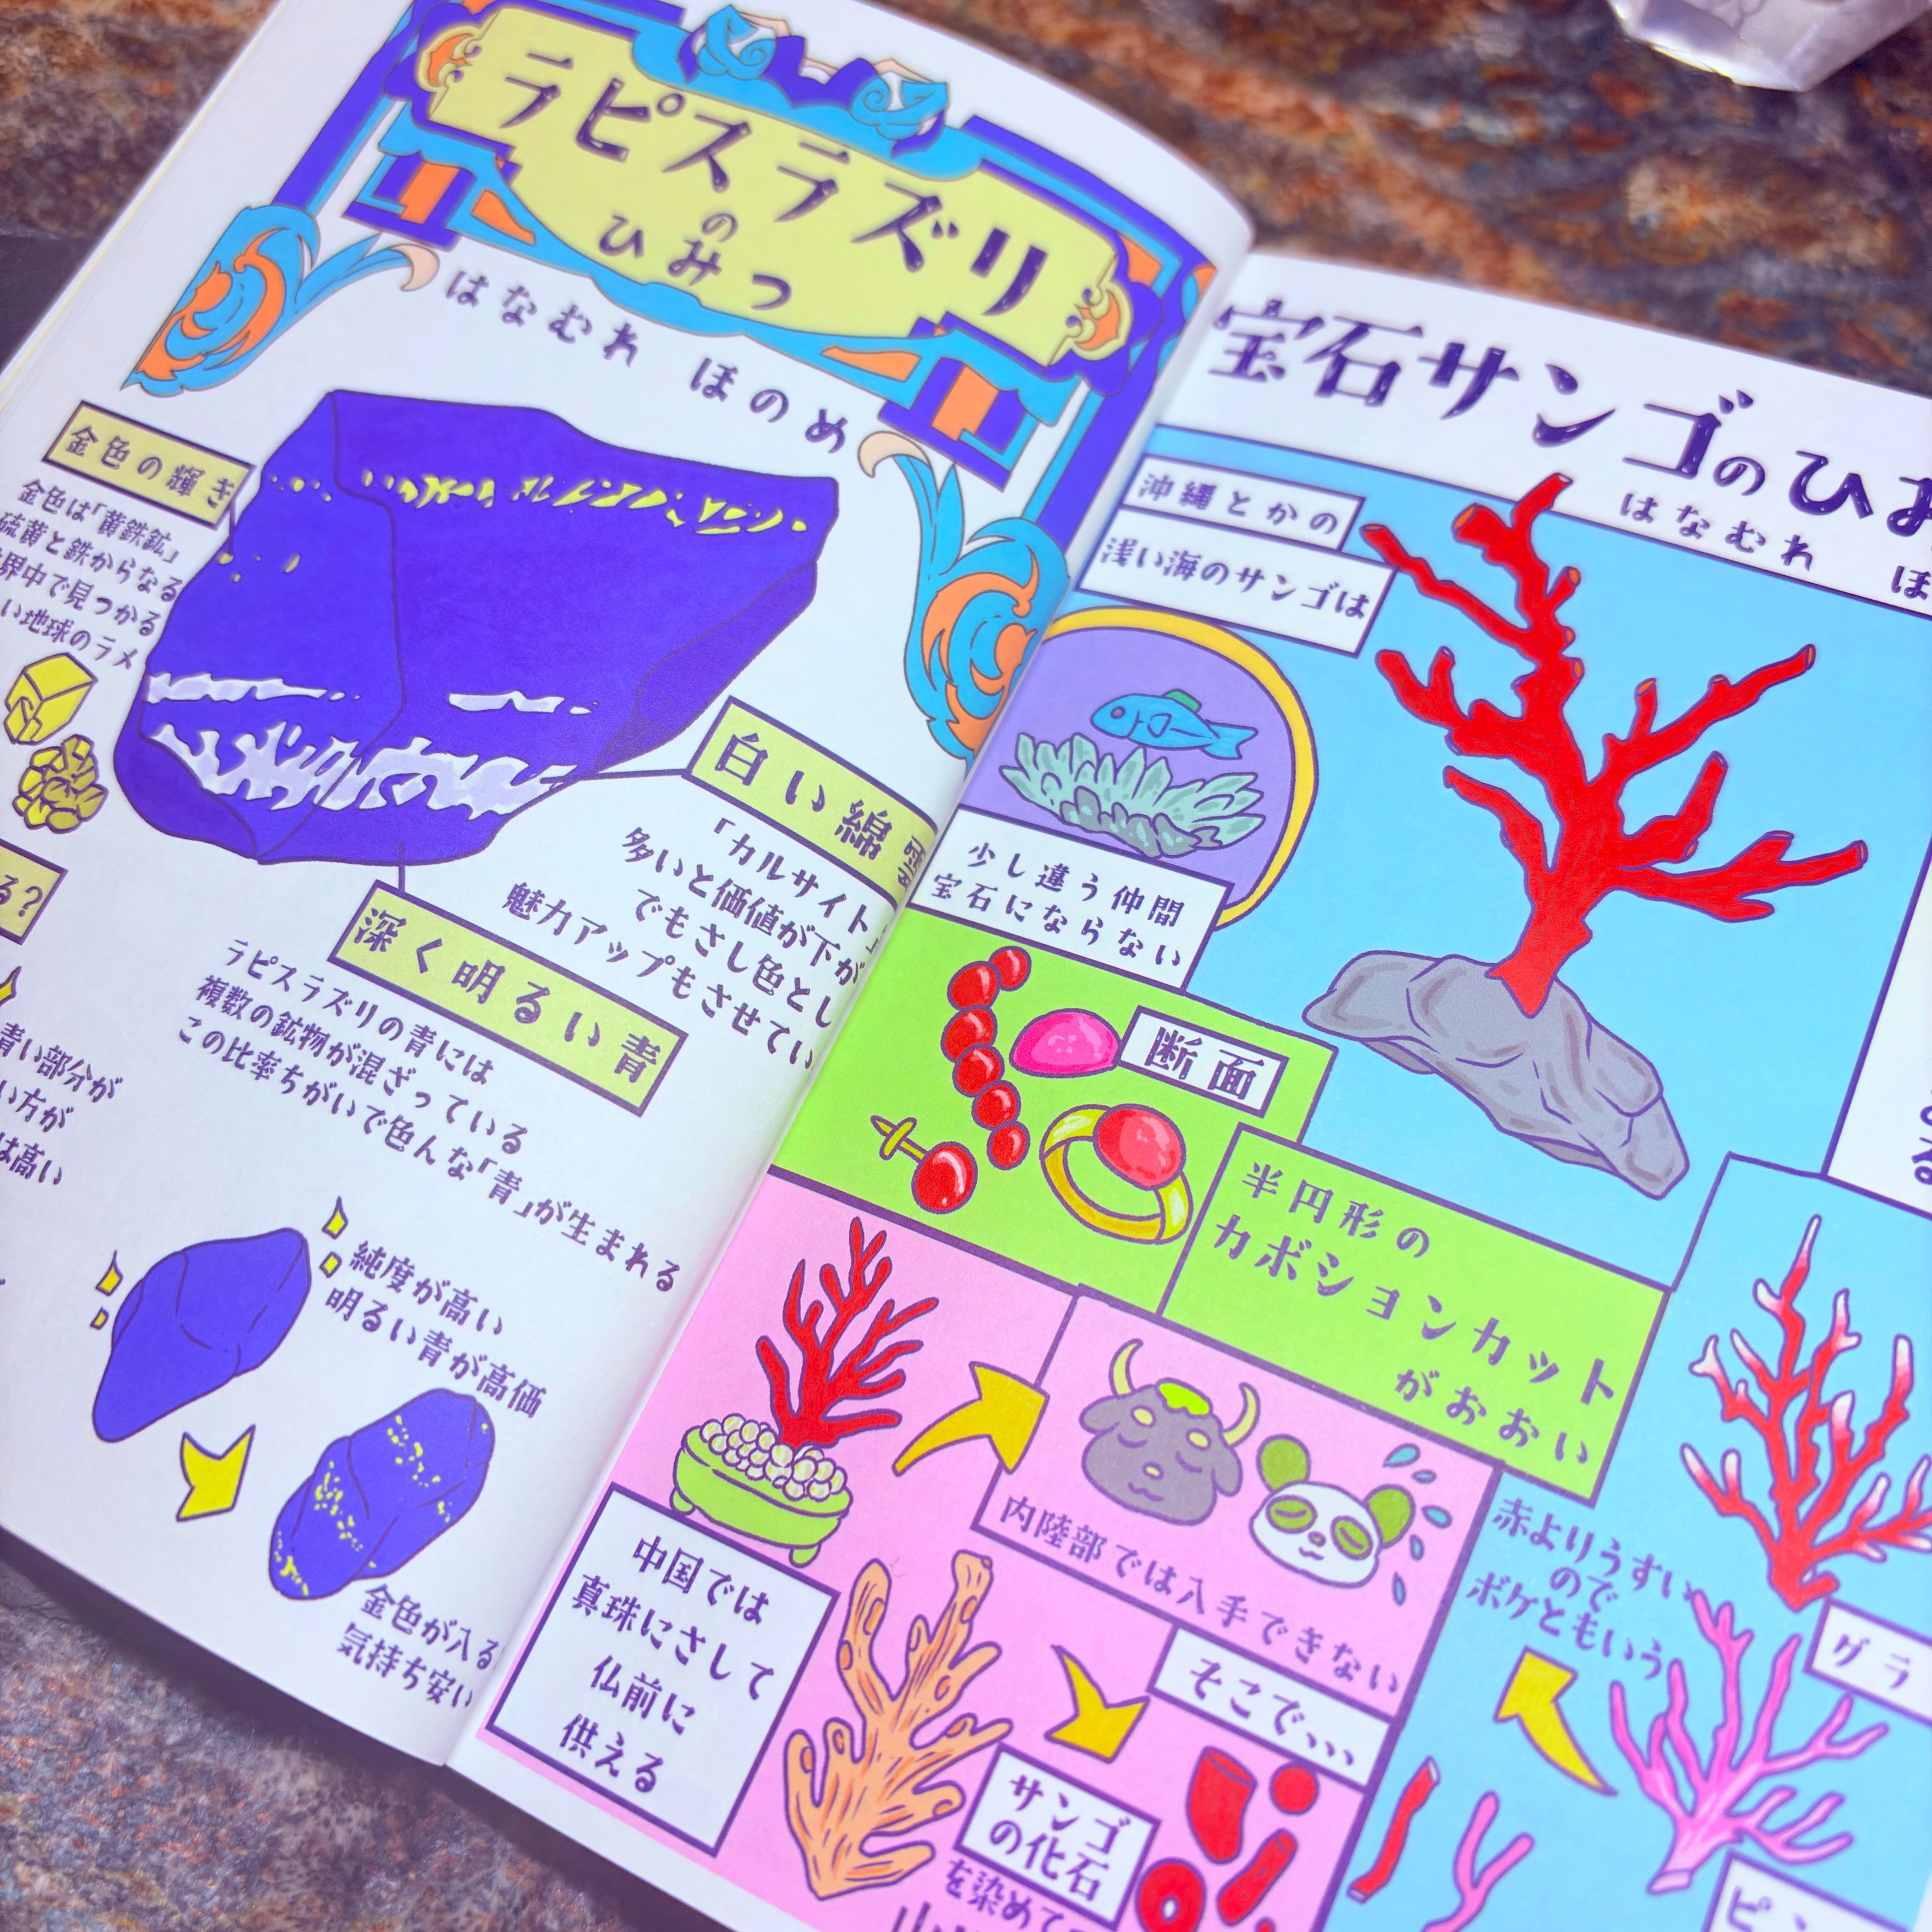 ラピスラズリ
の
ひみつ
はなむれ ほのめ
金色の輝き
金色は「黄鉄鉱」
硫黄と鉄からなる
界中で見つかる
い地球のラメ
白い綿雪
「カルサイト」
多いと価値が下が
でもさし色とし
魅力アップもさせてい
る?
青い部分が
い方が
は高い
深く明るい青
ラピスラズリの青には
複数の鉱物が混ざっている
この比率ちがいで色んな「青」が生まれる
純度が高い
明るい青が高価
金色が入る
気持ち安い
宝石サンゴのひみ
はなむれ ほ
沖縄とかの
浅い海のサンゴは
少し違う仲間
宝石にならない
断面
半円形の
カボションカット
がおおい
中国では
真珠にさして
仏前に
供える
内陸部では入手できない
そこで、、、
サンゴ
の化石
を染めて
赤よりうすい
ので
ボケともいう
グラ
ピン